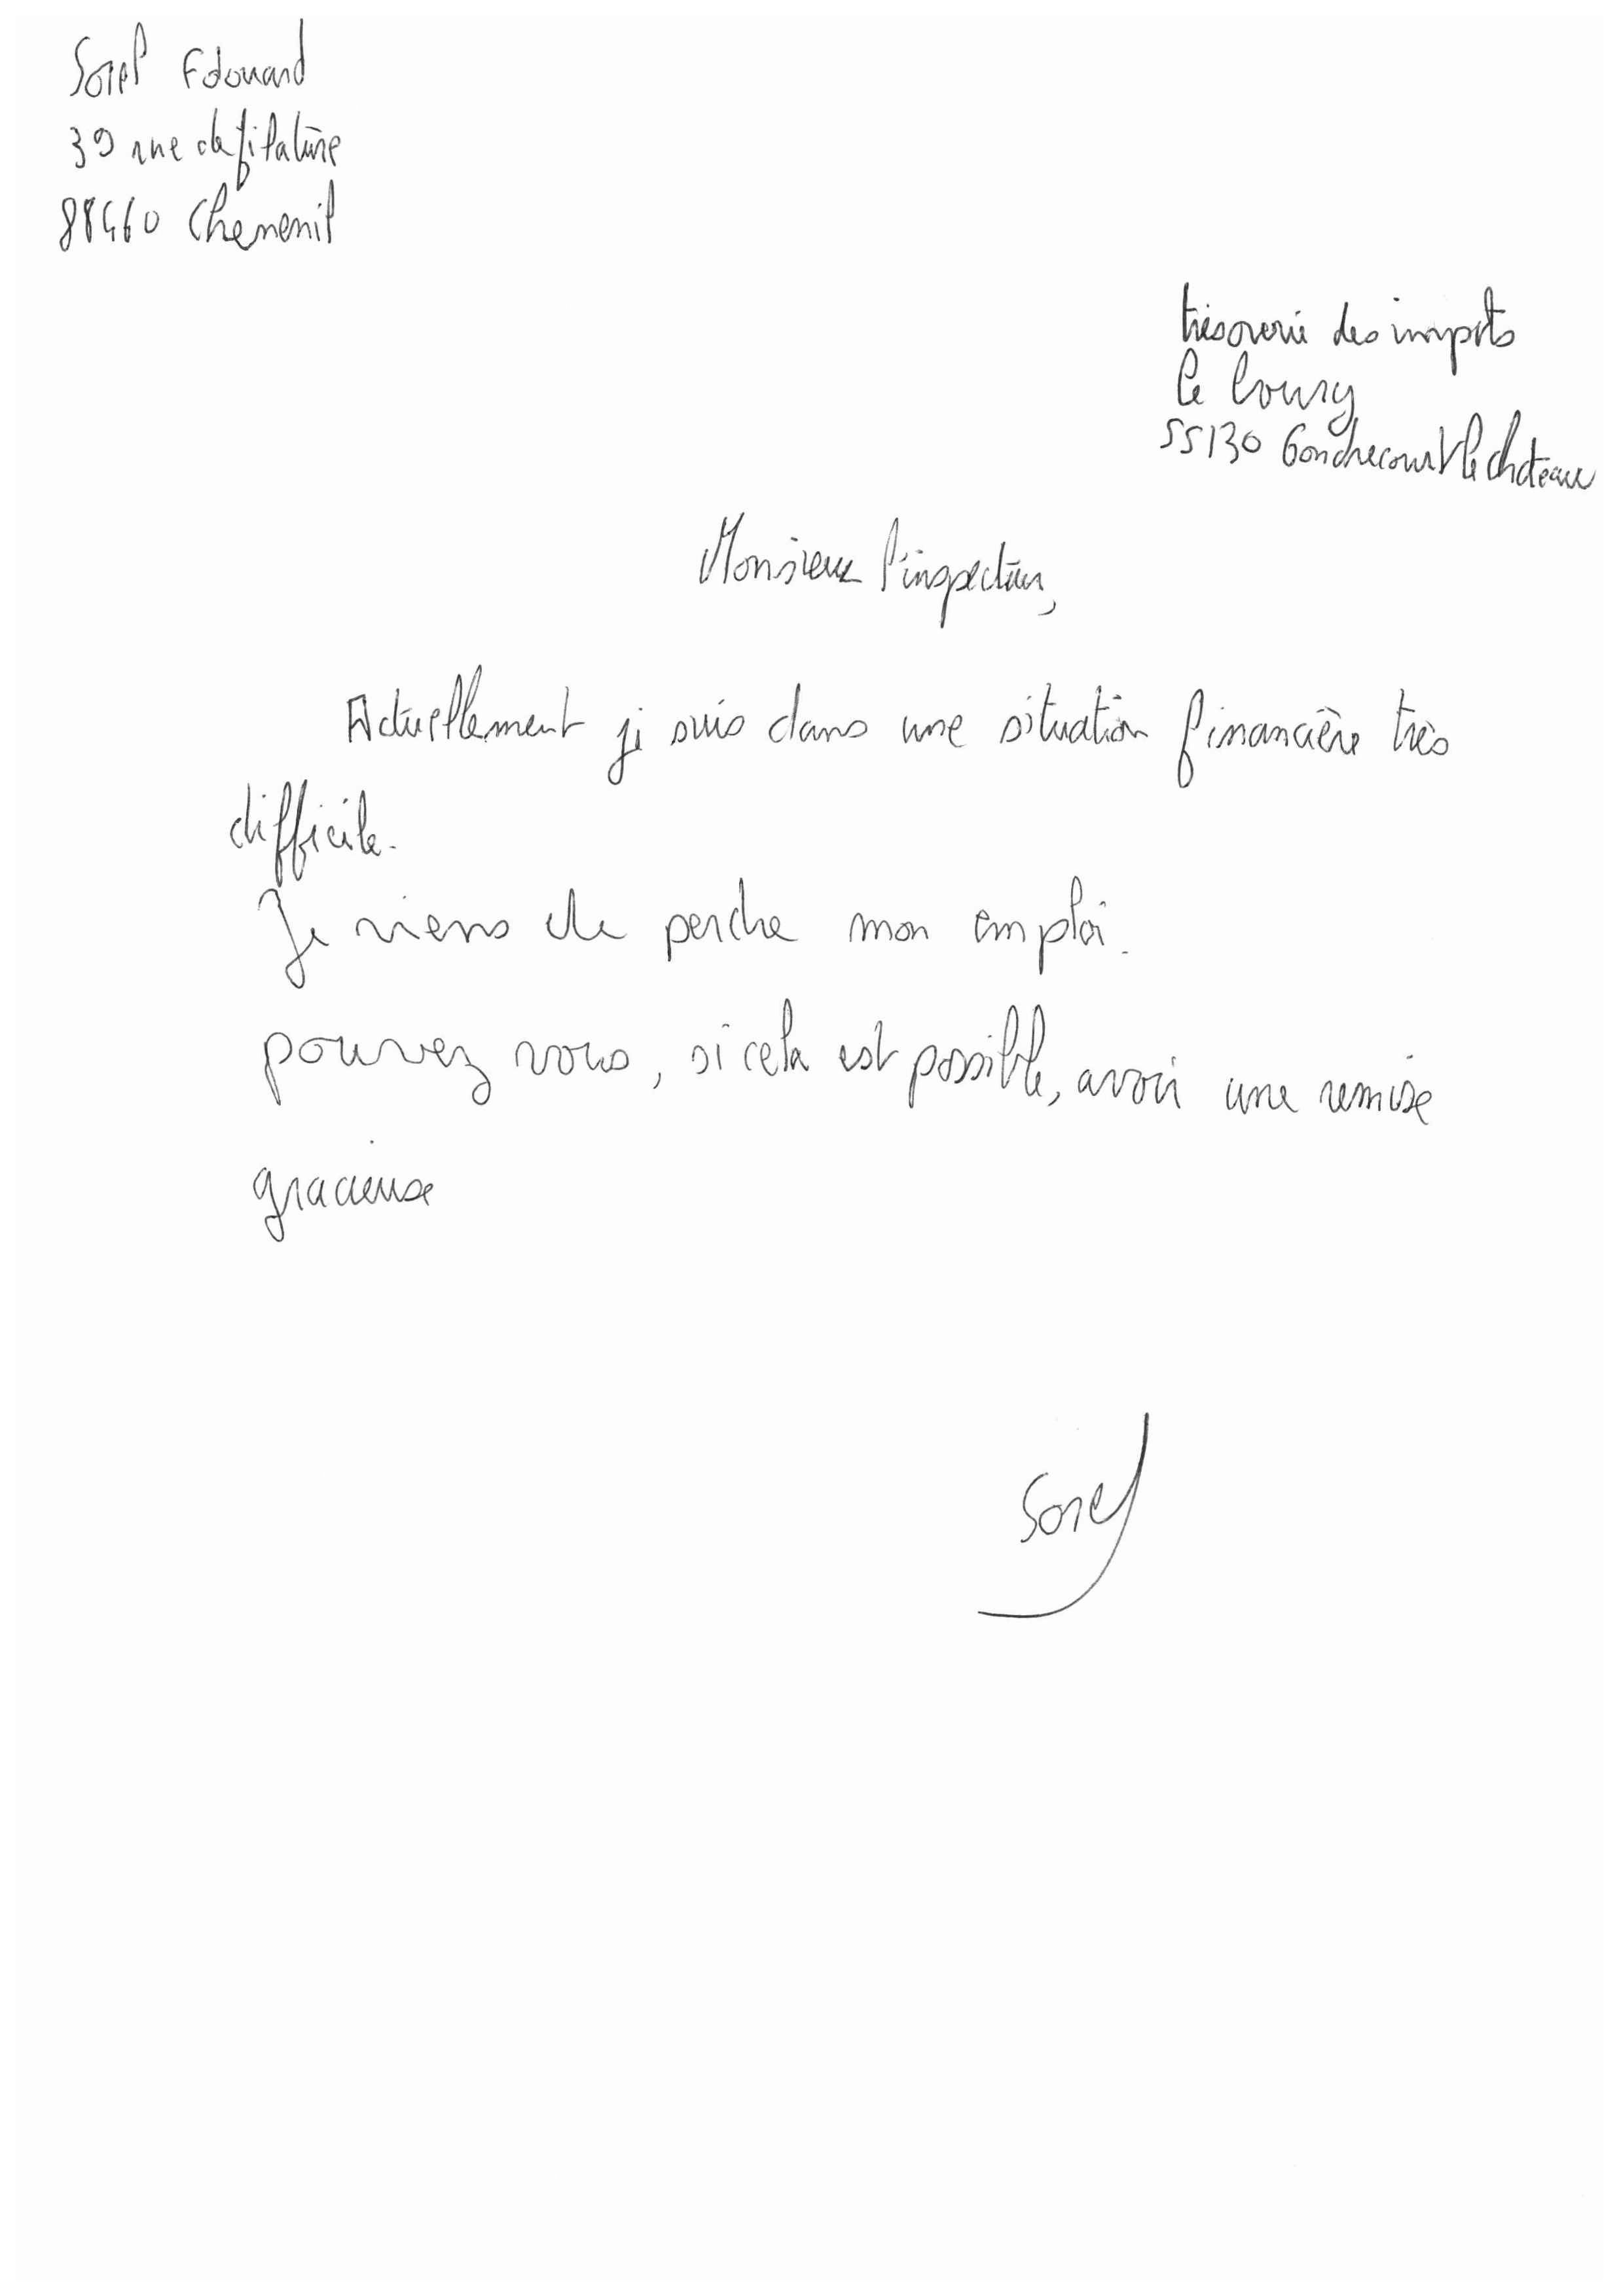 Sorel Edouard
39 rue de filature
88460 Chemenil
trésorerie des impots
le bourg
55130 Gondrecourt le chateau
Monsieur l'inspecteur,
Actuellement je suis dans une situation financière très
difficile.
Je viens de perdre mon emploi.
pouvez vous, si cela est possible, avoir une remise
gracieuse
Sorel